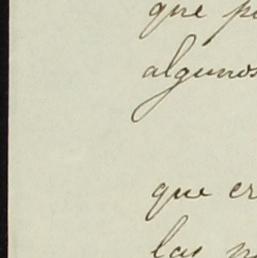 que p
algunos
que cr
las p